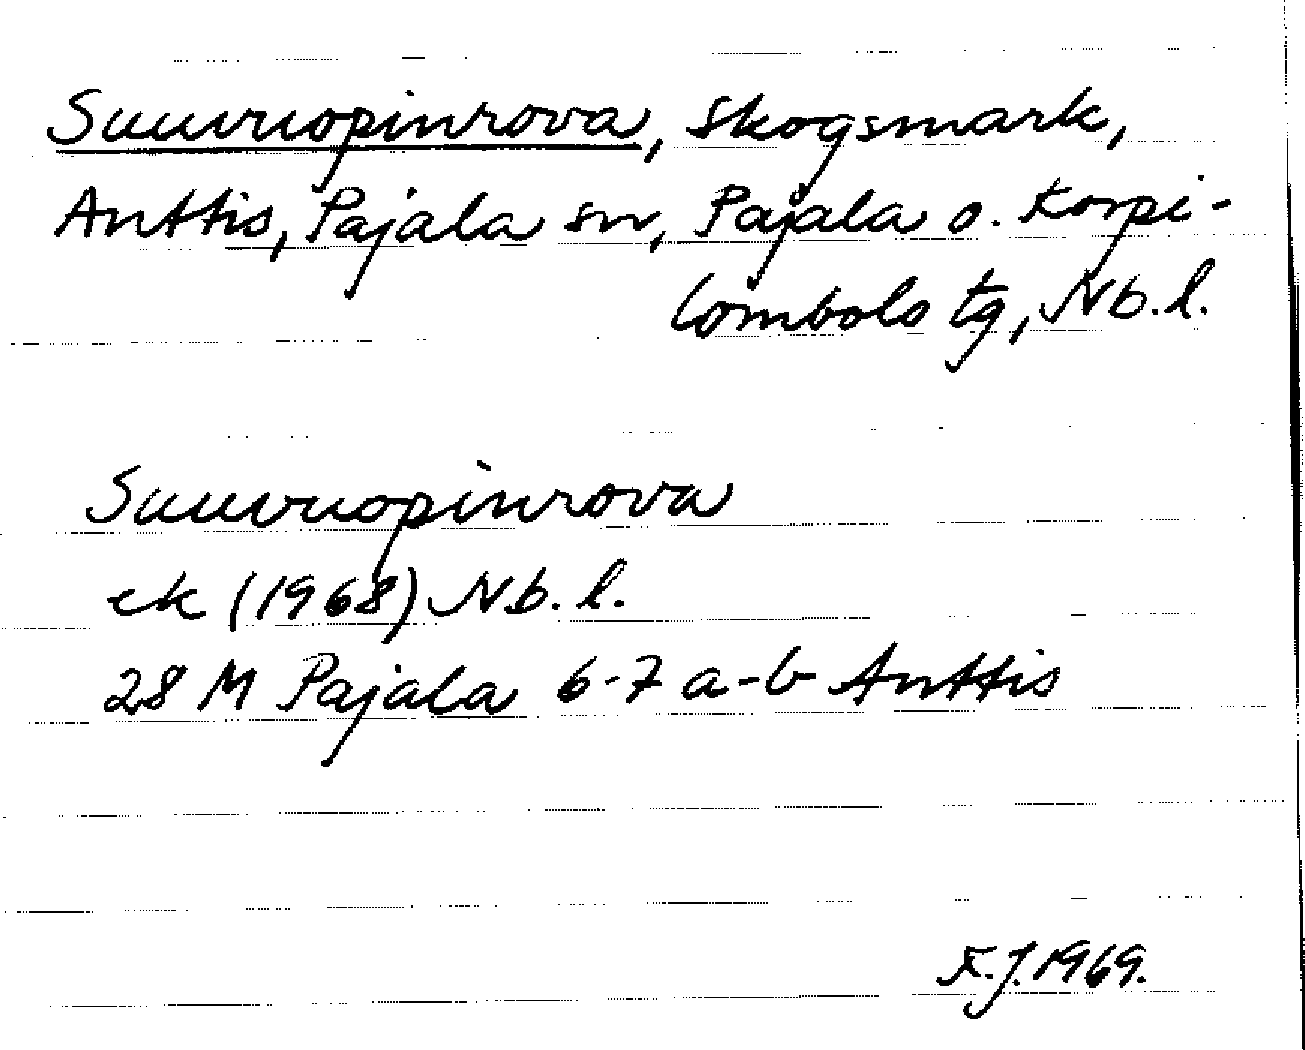 Suuvuopinrova, skogsmark,
Anttis, Pajala sn, Pajala o. Korpi-
lombolo tg, Nb.l.
Suuvuopinrova
ek (1968) Nb.l.
28 M Pajala 6-7 a-b Anttis
K.J. 1969.